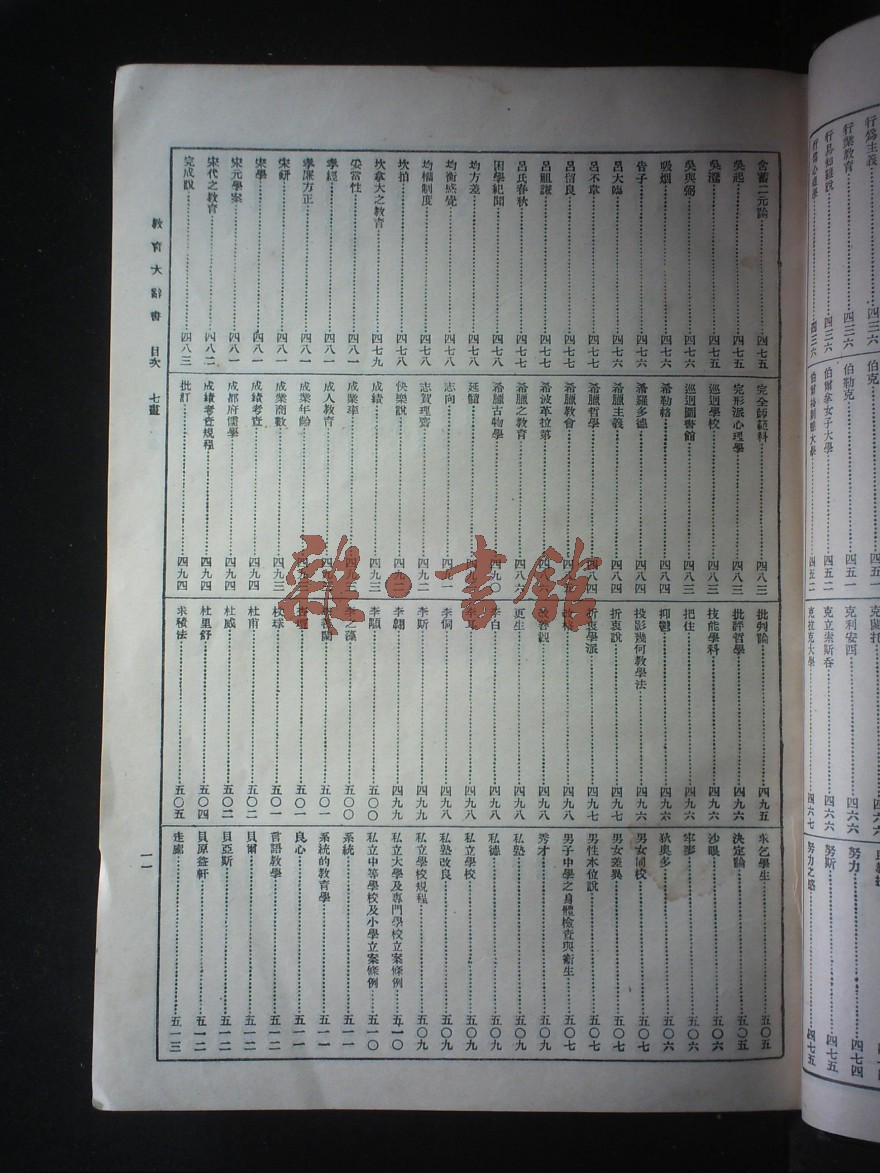 吳起……四七五
吳澄……四七五
吳與弼……四七六
吸烟……四七六
告子……四七六
呂大臨……四七七
呂不韋……四七七
呂留良……四七七
呂祖謙……四七七
呂氏春秋……四七七
困學紀聞……四七八
均方差……四七八
均衡感覺……四七八
均權制度……四七八
坎拍……四七八
坎拿大之教育……四七九
妥當性……四八一
孝經……四八一
孝廉方正……四八一
宋鈃……四八一
宋學……四八一
宋元學案……四八一
宋代之教育……四八二
完成說……四八三
完全師範科……四八三
完形派心理學……四八三
巡迴學校……四八三
巡迴圖書館……四八三
希勒格……四八四
希羅多德……四八四
希臘主義……四八四
希臘哲學……四八四
希臘教會
希波革拉第
希臘之教育……四八六
希臘古物學……四九〇
延髓
志向……四九一
志賀理齋……四九二
快樂說
成績……四九三
成業率
成人教育
成業年齡
成業商數……四九三
成績考查……四九四
成都府儒學……四九四
成績考查規程……四九四
批訂……四九四
批判論……四九五
批評哲學……四九六
技能學科……四九六
把住……四九六
抑鬱……四九六
投影幾何教學法……四九六
折衷說……四九七
折衷學派……四九七
更生……四九八
李白……四九八
李侗……四九八
李斯……四九九
李翱……四九九
李顒……五〇〇
李之藻……五〇〇
校球……五〇一
杜甫……五〇二
杜威……五〇二
杜里舒……五〇四
求積法……五〇五
求乞學生……五〇五
決定論……五〇五
沙眼……五〇六
牢騷……五〇六
狄奧多……五〇六
男女同校……五〇七
男女差異……五〇七
男性本位說……五〇七
男子中學之身體檢查與衞生……五〇七
秀才……五〇九
私塾……五〇九
私德……五〇九
私立學校……五〇九
私塾改良……五〇九
私立學校規程……五〇九
私立大學及專門學校立案條例……五一〇
私立中等學校及小學立案條例……五一〇
系統……五一一
系統的教育學……五一一
良心……五一一
言語教學……五一二
貝爾……五一二
貝亞斯……五一二
貝原益軒……五一二
走廊……五一三
教育大辭書 目次 七畫
一一
行爲主義……四三六
行業教育……四三六
行易知難說……四三六
四三六
伯克
伯勒克……四五一
伯爾拿女子大學……四五二
四五二
克蘭托
克利安西……四六六
克立索斯吞……四六六
克拉克大學……四六七
努力……四七四
努斯……四七五
努力之感……四七五
雜·書館